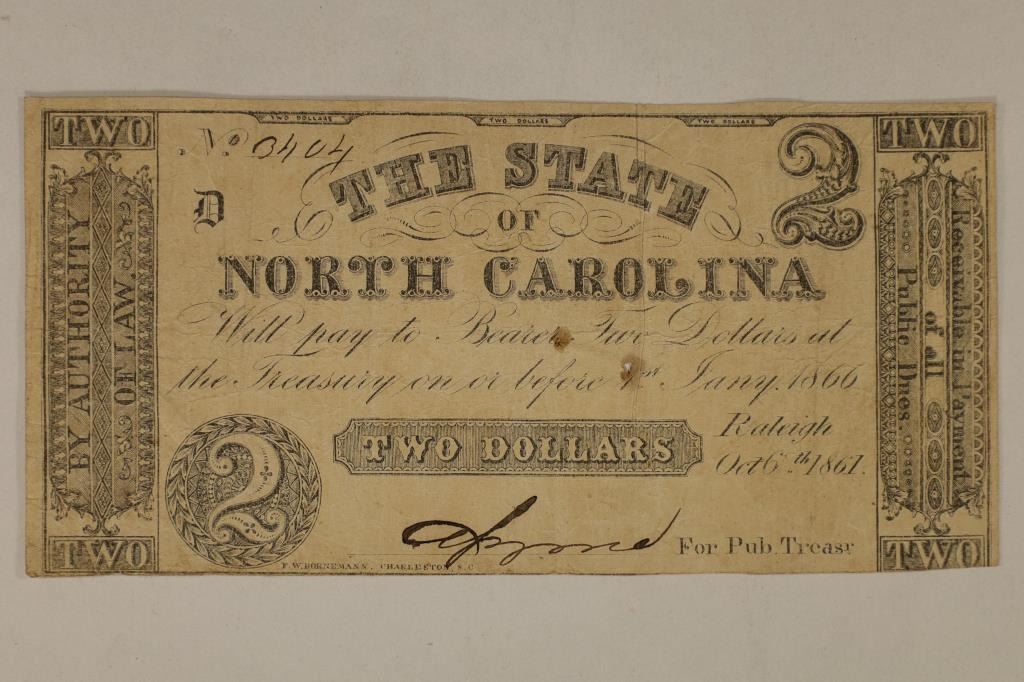 TWO DOLLARS TWO DOLLARS TWO DOLLARS
TWO TWO
No. 3404
THE STATE
2
D
OF
NORTH CAROLINA
Will pay to Bearer Two Dollars at
the Treasury on or before 1st. Jany. 1866
BY AUTHORITY
OF LAW.
Receivable in Payment
of all
Public Dues
TWO DOLLARS
Raleigh
Oct 6th 1861.
2
For Pub. Treasr
F. W. BORNEMANN, CHARLESTON, S.C.
TWO TWO